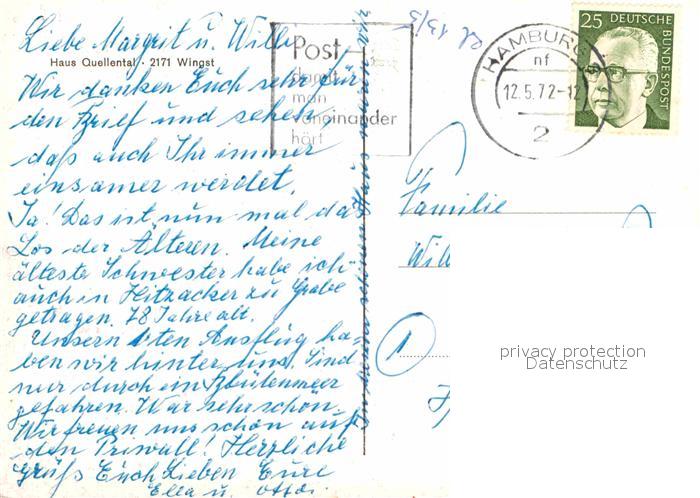 Liebe Margrit u. Willi
Haus Quellental · 2171 Wingst
Wir danken Euch sehr für
den Brief und sehen
daß auch Ihr immer
einsamer werdet.
Ja! Das ist nun mal das
Los der Älteren. Meine
älteste Schwester habe ich
auch in Hitzacker zu Grabe
getragen. 78 Jahre alt.
Unsern 1ten Ausflug ha-
ben wir hinter uns. Sind
nur durch ein Blütenmeer
gefahren. War sehr schön.
Wir freuen uns schön auf
den Priwall! Herzliche
Grüße Euch Lieben Eure
Ella u. Otto.
Post
damit
man
voneinander
hört
HAMBURG
nf
12.5.72-12
2
25 DEUTSCHE
BUNDESPOST
Familie
Will
privacy protection
Datenschutz